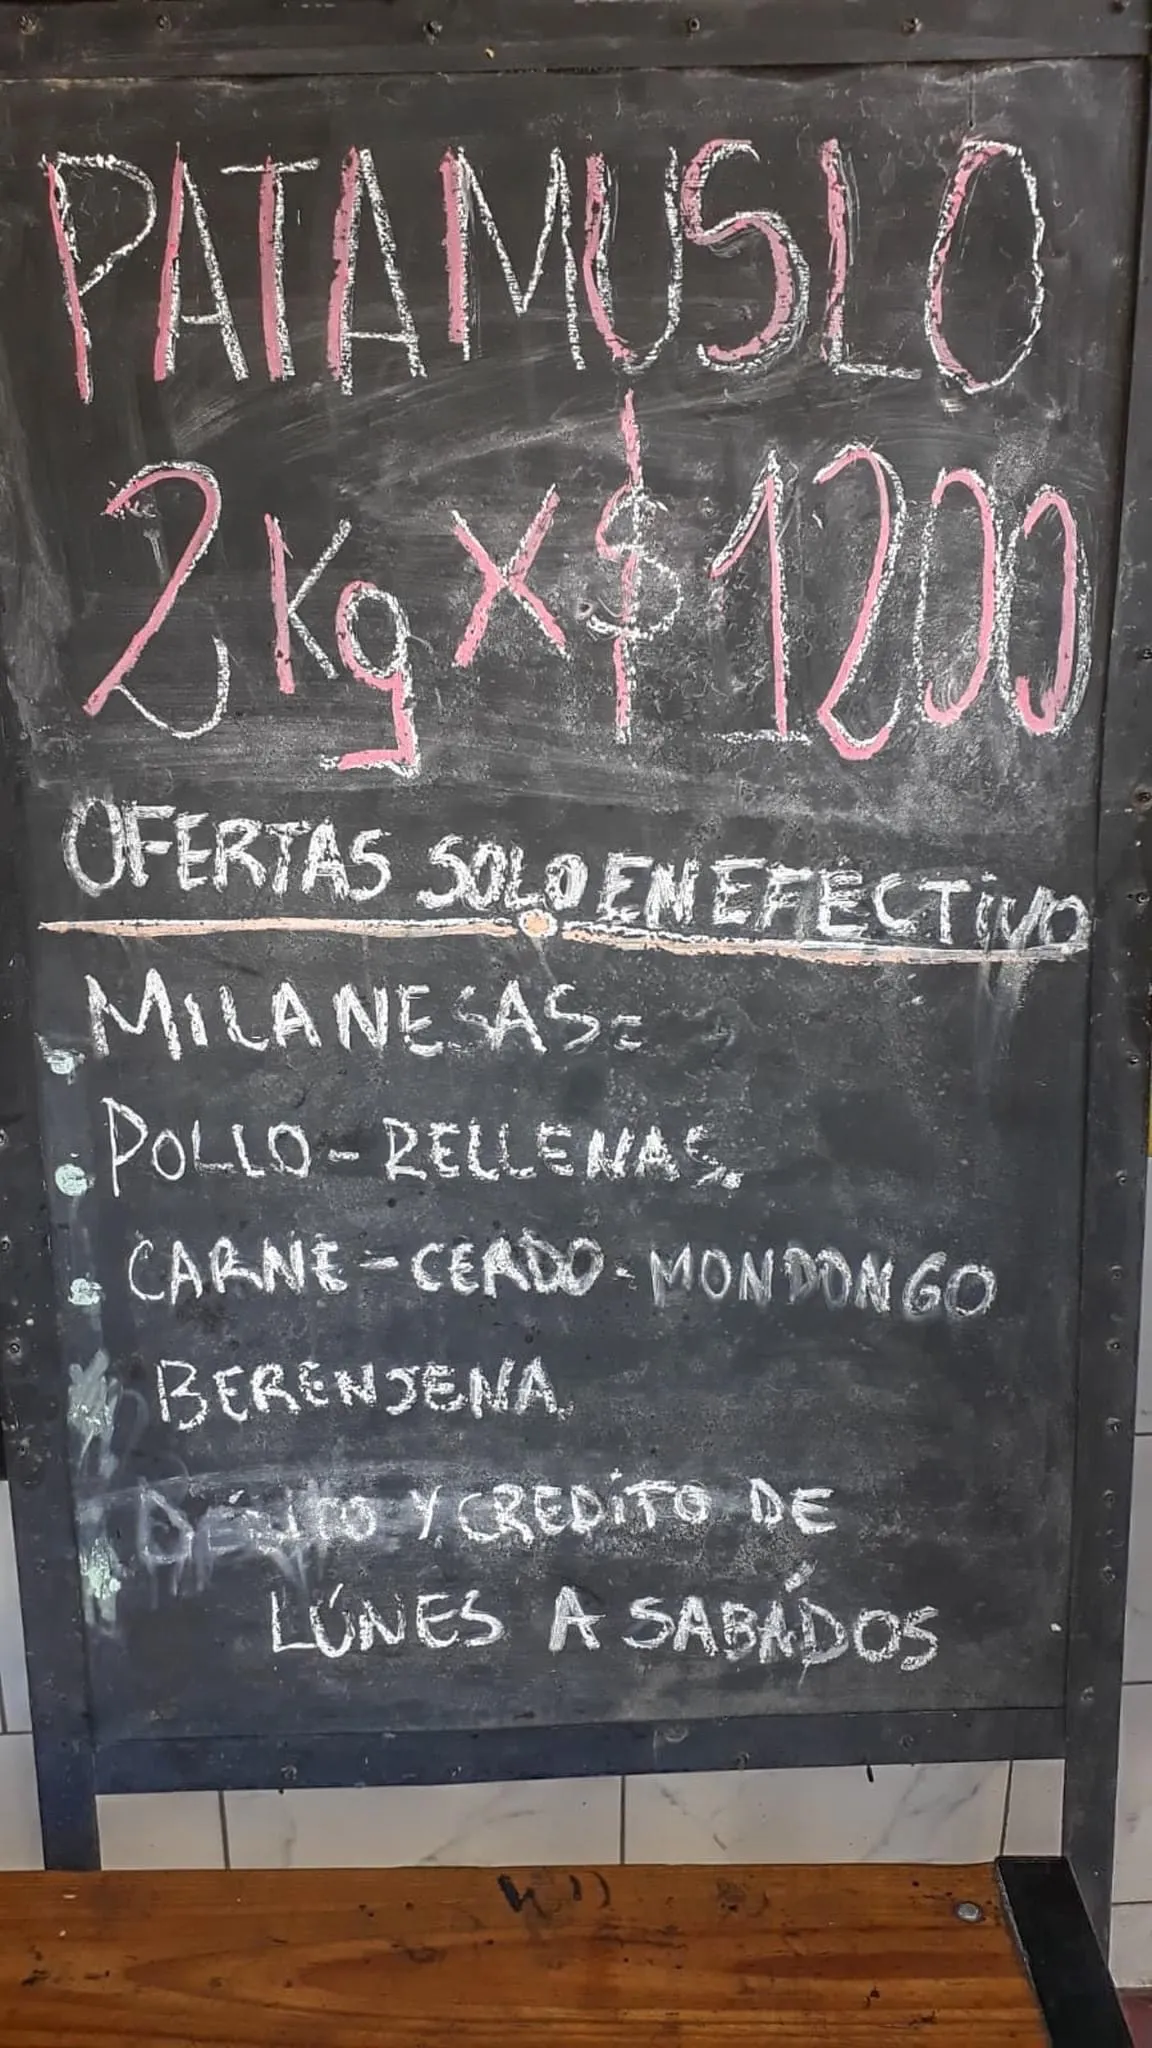 PATAMUSLO
2Kg X $1200
OFERTAS SOLO EN EFECTIVO
MILANESAS:
POLLO - RELLENAS.
CARNE - CERDO - MONDONGO
BERENJENA
DÉBITO Y CREDITO DE
LÚNES A SABÁDOS